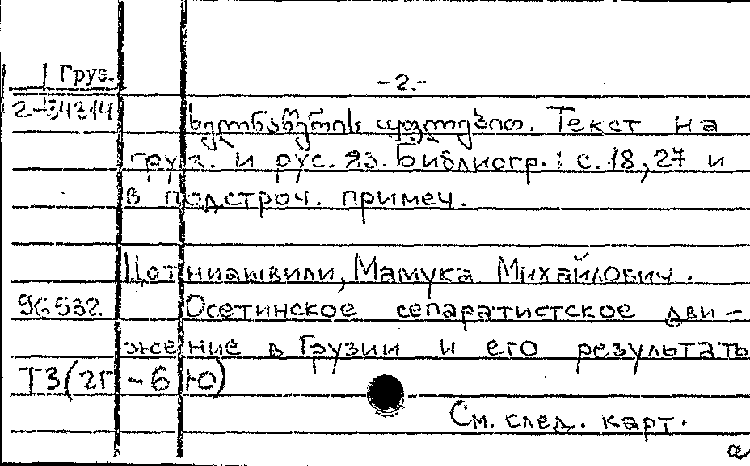 Груз.
-2.-
2-54314
ხელნაწერის უფლებით. Текст на
груз. и рус. яз. Библиогр.: с. 18, 27 и
в подстроч. примеч.
Цотниашвили, Мамука Михайлович.
96532 Осетинское сепаратистское дви-
жение в Грузии и его результаты
ТЗ(2г-6 Ю)
См. след. карт.